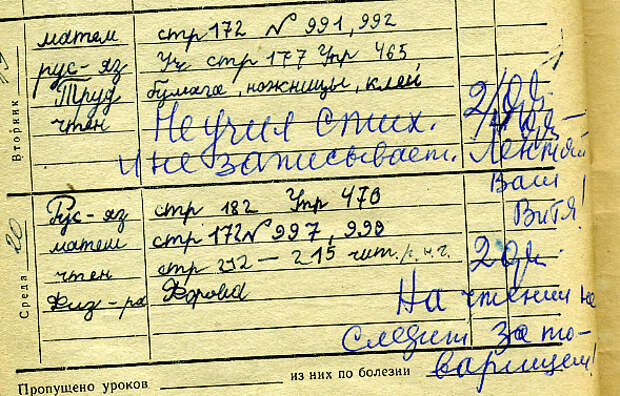 Вторник
матем стр 172 № 991, 992
рус-яз Уч стр 177 Упр 465
Труд бумага, ножницы, клей
чтен Не учил стих. 2/
и не записывает. Лентяй
Ваш
Витя!
Среда 20
Рус-яз стр 182 Упр 470
матем стр 172 № 997, 998
чтен стр 212 – 215 чит. 2
Физ-ра Форма
На чтении не
следит за то-
варищем!
Пропущено уроков из них по болезни